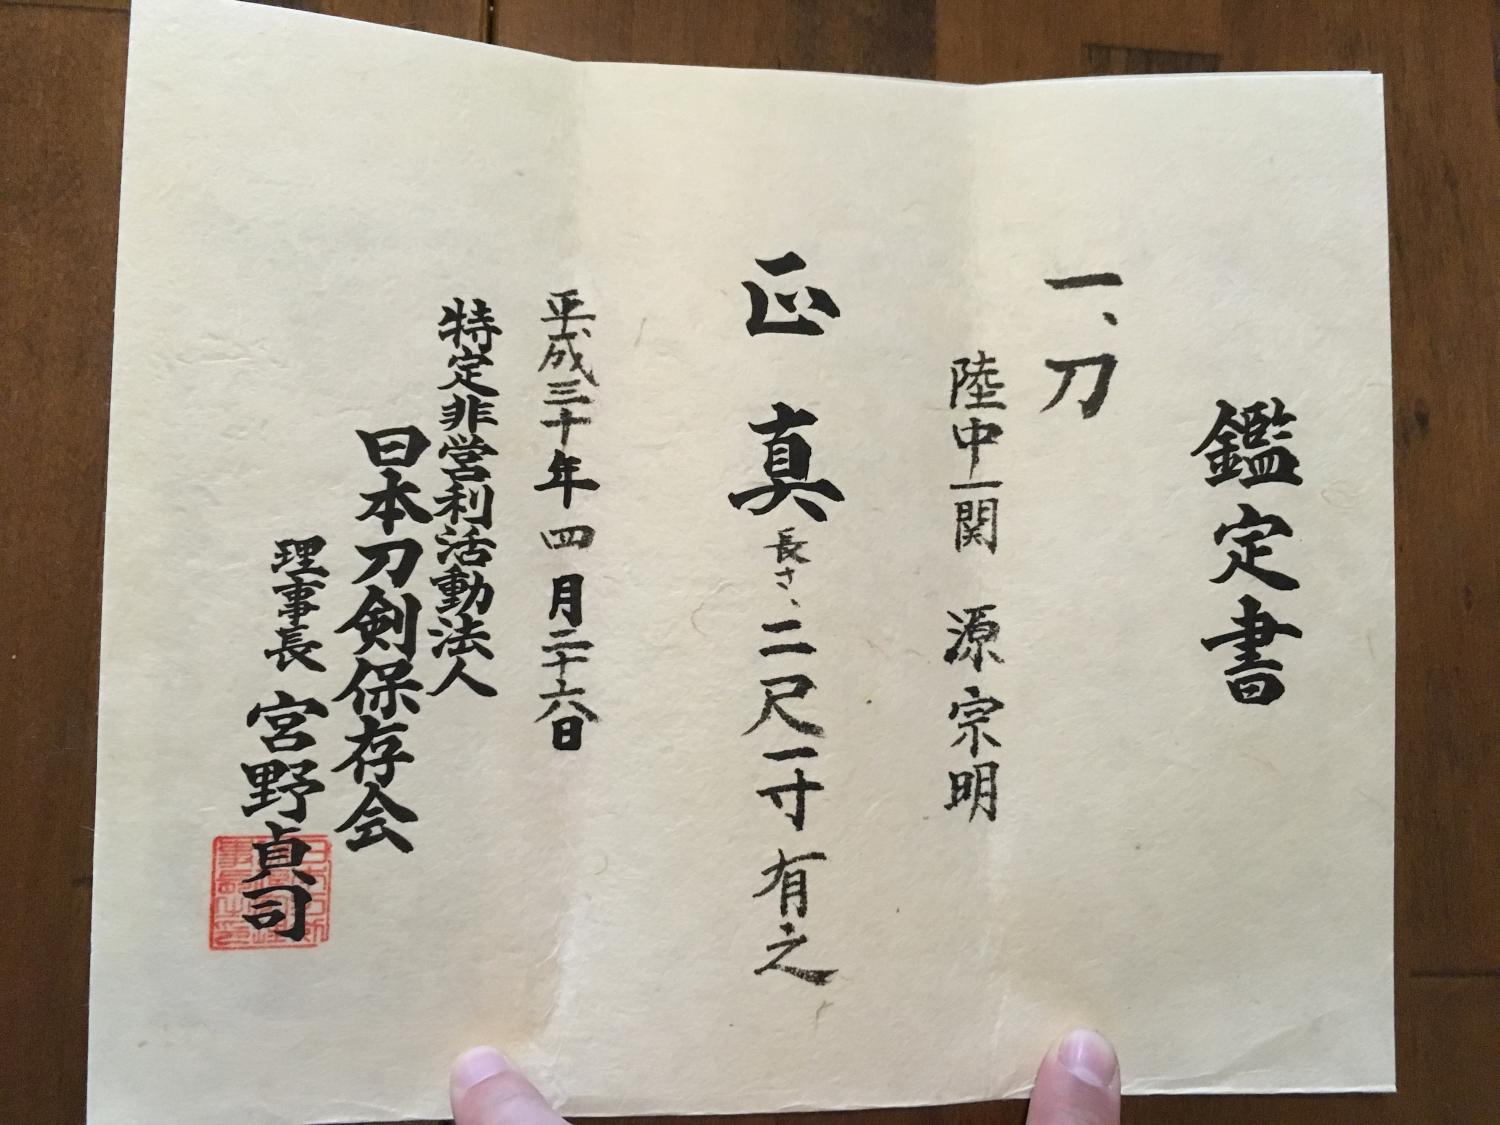 鑑定書
一、刀
陸中一関 源宗明
正真 長さ、二尺一寸有之
平成三十年四月二十六日
特定非営利活動法人
日本刀剣保存会
理事長 宮野貞司